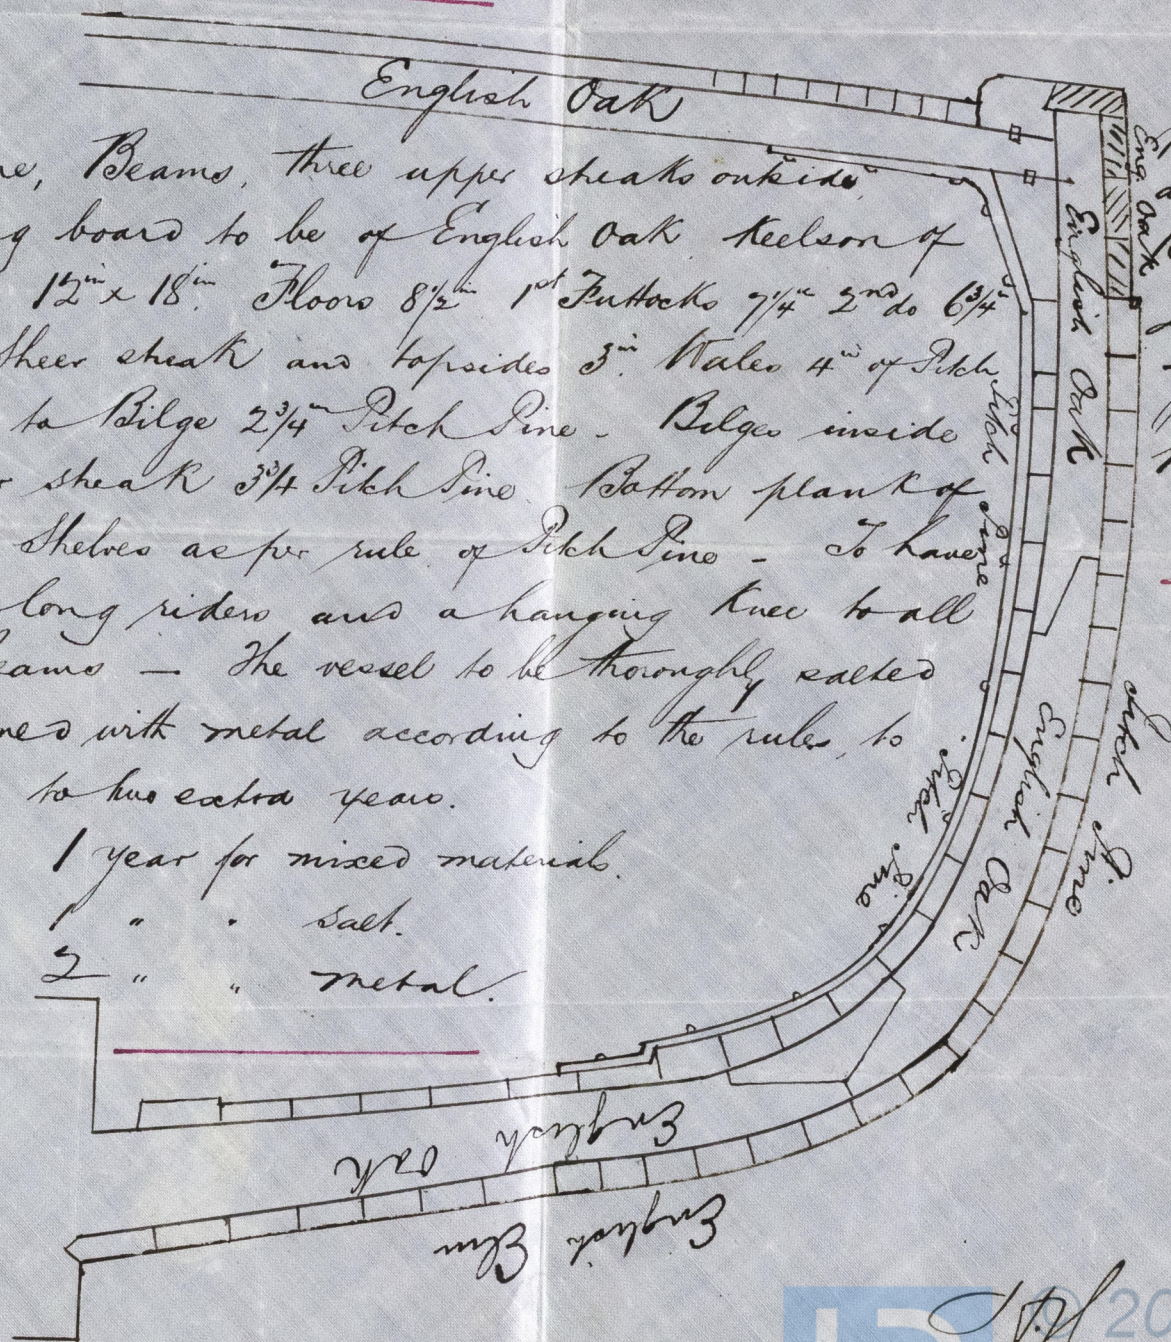 English Oak
Beams, three upper streaks outside
board to be of English Oak Keelson of
12in x 18in. Floors 8 1/2in 1st Futtocks 7 1/4in 2nd do 6 3/4in
Sheer streak and topsides 3in. Wales 4in of Pitch
to Bilge 2 3/4in Pitch Pine - Bilges inside
streak 3 3/4 Pitch Pine. Bottom plank of
Shelves as per rule of Pitch Pine - To have
long riders and a hanging Knee to all
— The vessel to be thoroughly salted
with metal according to the rules, to
to two extra years.
1 year for mixed materials.
1 " " salt.
2 " " metal.
Eng Oak
English Oak
Pitch Pine
English Oak
Pitch Pine
Pitch Pine
English Oak
English Elm
© 20